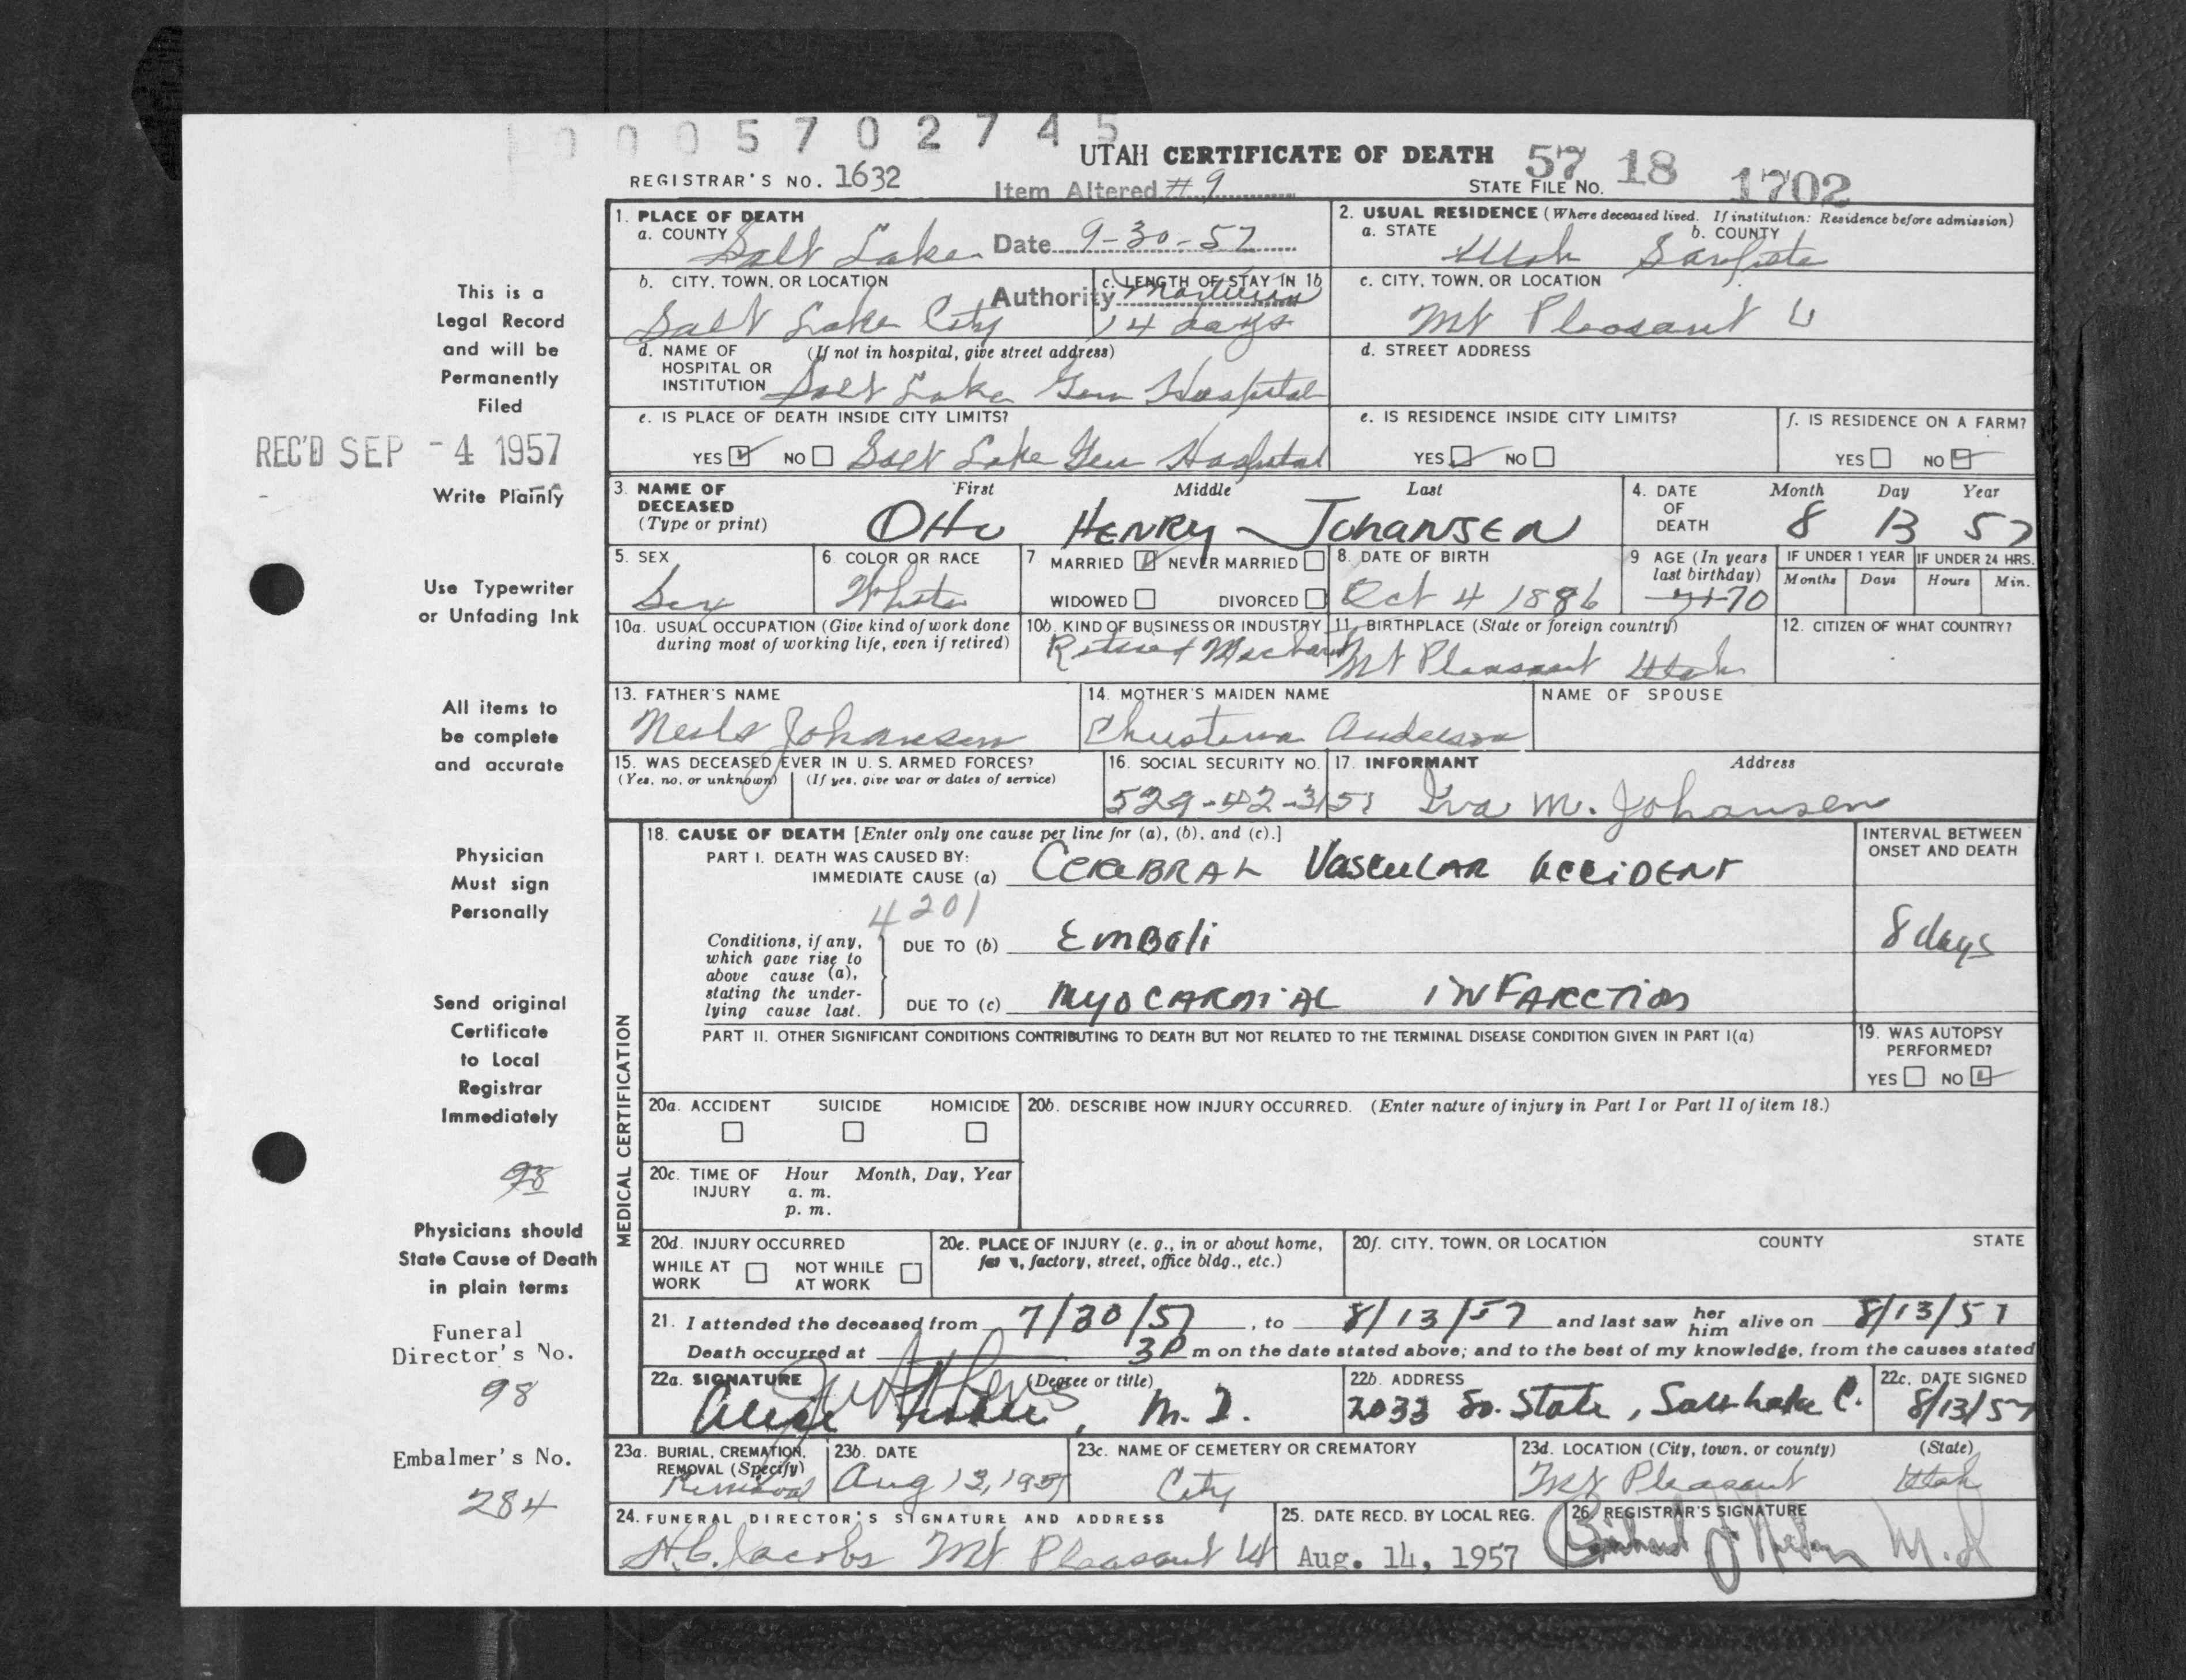 1 0 0 0 5 7 0 2 7 4 5
UTAH CERTIFICATE OF DEATH 57 18 1702
REGISTRAR'S NO. 1632
Item Altered #9
STATE FILE NO.
1. PLACE OF DEATH
a. COUNTY Salt Lake
Date 9-30-57
2. USUAL RESIDENCE (Where deceased lived. If institution: Residence before admission)
a. STATE Utah b. COUNTY Sanpete
b. CITY, TOWN, OR LOCATION Salt Lake City
Authority
c. LENGTH OF STAY IN 1b 14 days
c. CITY, TOWN, OR LOCATION Mt Pleasant U
d. NAME OF HOSPITAL OR INSTITUTION (If not in hospital, give street address) Salt Lake Gen Hospital
d. STREET ADDRESS
e. IS PLACE OF DEATH INSIDE CITY LIMITS?
YES NO Salt Lake Gen Hospital
e. IS RESIDENCE INSIDE CITY LIMITS?
YES NO
f. IS RESIDENCE ON A FARM?
YES NO
3. NAME OF DECEASED (Type or print) First Middle Last
Otto HENRY JOHANSEN
4. DATE OF DEATH Month Day Year
8 13 57
5. SEX Sex
6. COLOR OR RACE White
7 MARRIED NEVER MARRIED
WIDOWED DIVORCED
8. DATE OF BIRTH Oct 4 1886
9 AGE (In years last birthday) 71 70
IF UNDER 1 YEAR Months Days
IF UNDER 24 HRS. Hours Min.
10a. USUAL OCCUPATION (Give kind of work done during most of working life, even if retired)
10b. KIND OF BUSINESS OR INDUSTRY Retired
11. BIRTHPLACE (State or foreign country) Mt Pleasant Utah
12. CITIZEN OF WHAT COUNTRY?
13. FATHER'S NAME Neils Johansen
14. MOTHER'S MAIDEN NAME Christena Anderson
NAME OF SPOUSE
15. WAS DECEASED EVER IN U. S. ARMED FORCES?
(Yes, no, or unknown) (If yes, give war or dates of service)
16. SOCIAL SECURITY NO. 529-42-3151
17. INFORMANT Address
Iva M. Johansen
MEDICAL CERTIFICATION
18. CAUSE OF DEATH [Enter only one cause per line for (a), (b), and (c).]
PART I. DEATH WAS CAUSED BY:
IMMEDIATE CAUSE (a) CEREBRAL VASCULAR ACCIDENT
INTERVAL BETWEEN ONSET AND DEATH
4201
Conditions, if any, which gave rise to above cause (a), stating the underlying cause last.
DUE TO (b) EMBOLI
8 days
DUE TO (c) MYOCARDIAL INFARCTION
PART II. OTHER SIGNIFICANT CONDITIONS CONTRIBUTING TO DEATH BUT NOT RELATED TO THE TERMINAL DISEASE CONDITION GIVEN IN PART I(a)
19. WAS AUTOPSY PERFORMED?
YES NO
20a. ACCIDENT SUICIDE HOMICIDE
20b. DESCRIBE HOW INJURY OCCURRED. (Enter nature of injury in Part I or Part II of item 18.)
20c. TIME OF INJURY Hour Month, Day, Year
a. m.
p. m.
20d. INJURY OCCURRED
WHILE AT WORK NOT WHILE AT WORK
20e. PLACE OF INJURY (e. g., in or about home, farm, factory, street, office bldg., etc.)
20f. CITY, TOWN, OR LOCATION COUNTY STATE
21. I attended the deceased from 7/30/57, to 8/13/57 and last saw her him alive on 8/13/57
Death occurred at 3P m on the date stated above; and to the best of my knowledge, from the causes stated
22a. SIGNATURE (Degree or title)
M. D.
22b. ADDRESS 2033 So. State, Salt Lake C.
22c. DATE SIGNED 8/13/57
23a. BURIAL, CREMATION, REMOVAL (Specify) Removal
23b. DATE Aug 13, 1957
23c. NAME OF CEMETERY OR CREMATORY City
23d. LOCATION (City, town, or county) (State)
Mt Pleasant Utah
24. FUNERAL DIRECTOR'S SIGNATURE AND ADDRESS
H.C. Jacobs Mt Pleasant Ut
25. DATE RECD. BY LOCAL REG. Aug. 14, 1957
26. REGISTRAR'S SIGNATURE
M.D
This is a
Legal Record
and will be
Permanently
Filed
REC'D SEP -4 1957
Write Plainly
Use Typewriter
or Unfading Ink
All items to
be complete
and accurate
Physician
Must sign
Personally
Send original
Certificate
to Local
Registrar
Immediately
98
Physicians should
State Cause of Death
in plain terms
Funeral
Director's No.
98
Embalmer's No.
284